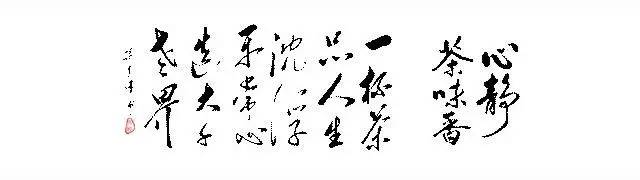 心静
茶味香
一杯茶
品人生
沈浮
平常心
造大千
世界